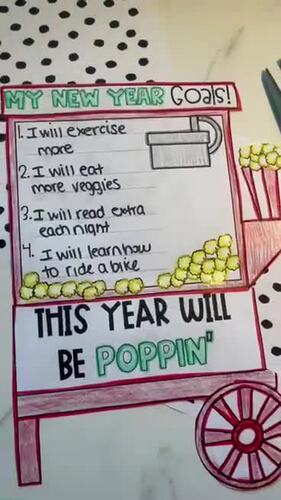 MY NEW YEAR Goals!
1. I will exercise
more
2. I will eat
more veggies
3. I will read extra
each night
4. I will learn how
to ride a bike
THIS YEAR WILL
BE POPPIN'